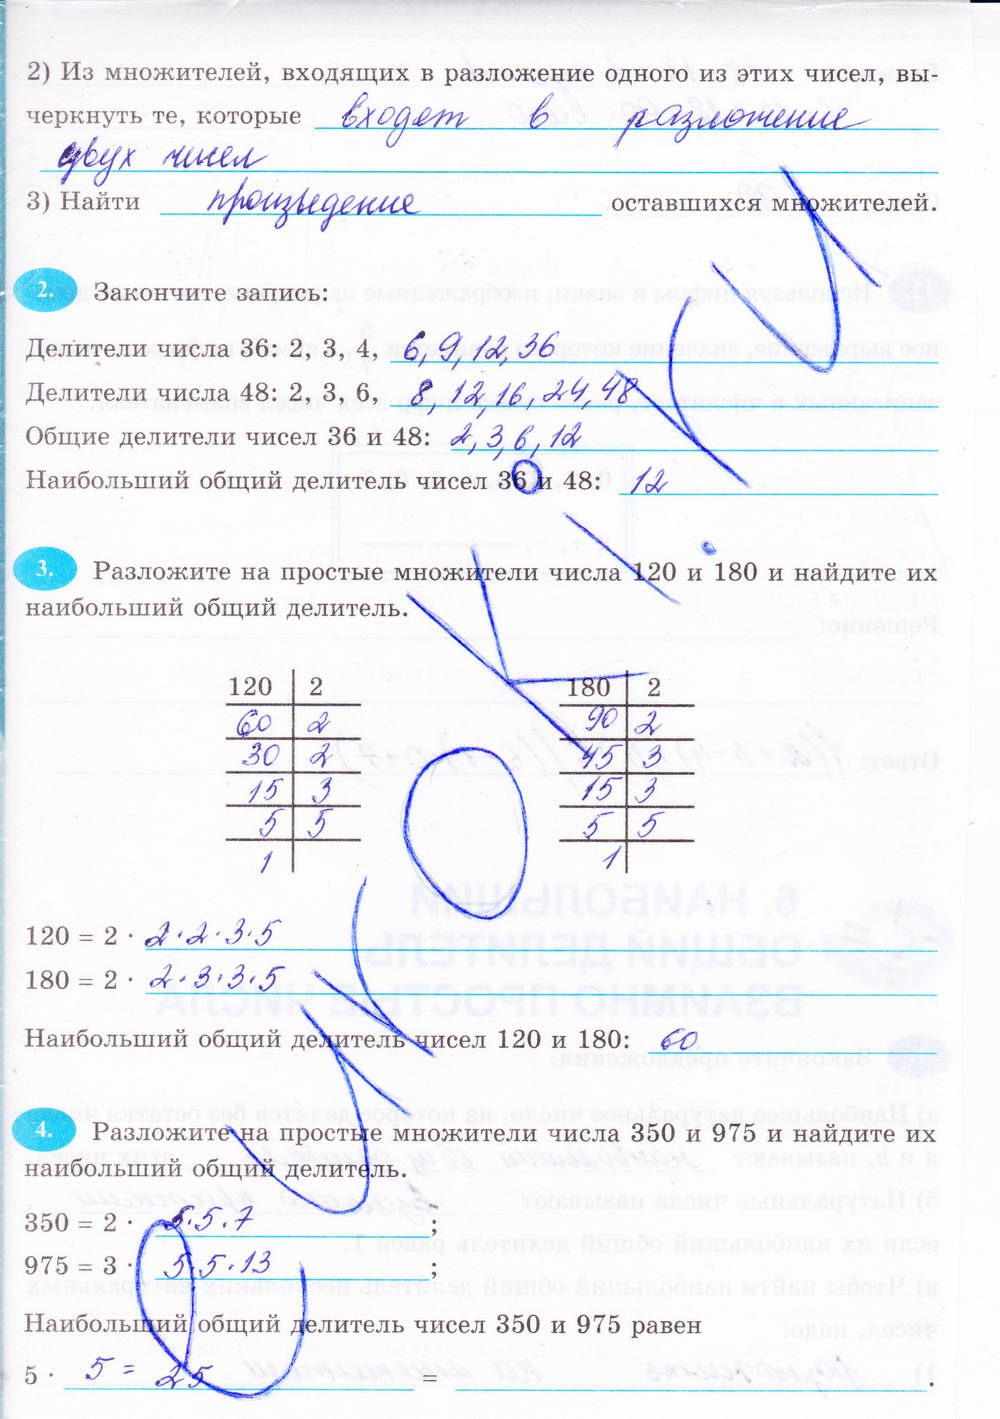 2) Из множителей, входящих в разложение одного из этих чисел, вы-
черкнуть те, которые входят в разложение
двух чисел
3) Найти произведение оставшихся множителей.
2. Закончите запись:
Делители числа 36: 2, 3, 4, 6, 9, 12, 36
Делители числа 48: 2, 3, 6, 8, 12, 16, 24, 48
Общие делители чисел 36 и 48: 2, 3, 6, 12
Наибольший общий делитель чисел 36 и 48: 12
3. Разложите на простые множители числа 120 и 180 и найдите их
наибольший общий делитель.
120 2 180 2
60 2 90 2
30 2 45 3
15 3 15 3
5 5 5 5
1 1
120 = 2 · 2·2·3·5
180 = 2 · 2·3·3·5
Наибольший общий делитель чисел 120 и 180: 60
4. Разложите на простые множители числа 350 и 975 и найдите их
наибольший общий делитель.
350 = 2 · 5·5·7 ;
975 = 3 · 5·5·13 ;
Наибольший общий делитель чисел 350 и 975 равен
5 · 5 = 25 = .